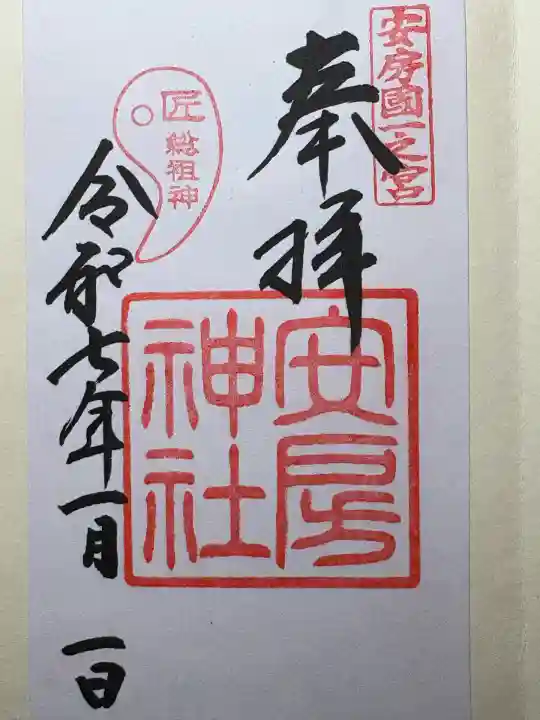 安房國一之宮
奉拝
安房
神社
匠
総祖神
令和七年一月一日